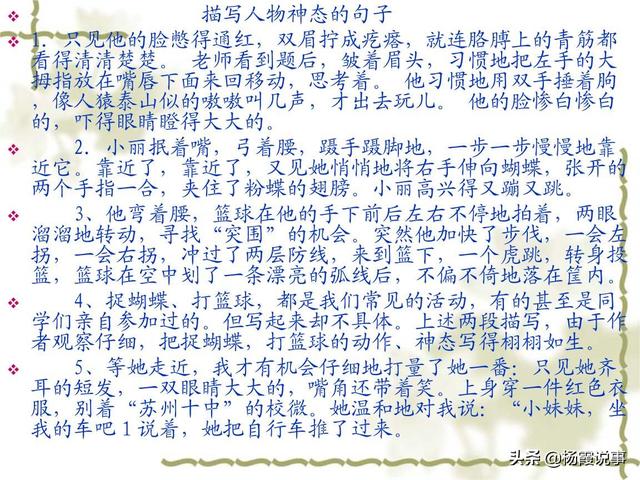 描写人物神态的句子
1．只见他的脸憋得通红，双眉拧成疙瘩，就连胳膊上的青筋都
看得清清楚楚。 老师看到题后，皱着眉头，习惯地把左手的大
拇指放在嘴唇下面来回移动，思考着。 他习惯地用双手捶着胸
，像人猿泰山似的嗷嗷叫几声，才出去玩儿。 他的脸惨白惨白
的，吓得眼睛瞪得大大的。
2．小丽抿着嘴，弓着腰，蹑手蹑脚地，一步一步慢慢地靠
近它。靠近了，靠近了，又见她悄悄地将右手伸向蝴蝶，张开的
两个手指一合，夹住了粉蝶的翅膀。小丽高兴得又蹦又跳。
3、他弯着腰，篮球在他的手下前后左右不停地拍着，两眼
溜溜地转动，寻找“突围”的机会。突然他加快了步伐，一会左
拐，一会右拐，冲过了两层防线，来到篮下，一个虎跳，转身投
篮，篮球在空中划了一条漂亮的弧线后，不偏不倚地落在筐内。
4、捉蝴蝶、打篮球，都是我们常见的活动，有的甚至是同
学们亲自参加过的。但写起来却不具体。上述两段描写，由于作
者观察仔细，把捉蝴蝶，打篮球的动作、神态写得栩栩如生。
5、等她走近，我才有机会仔细地打量了她一番：只见她齐
耳的短发，一双眼睛大大的，嘴角还带着笑。上身穿一件红色衣
服，别着“苏州十中”的校微。她温和地对我说：“小妹妹，坐
我的车吧1说着，她把自行车推了过来。
头条 @杨霞说事